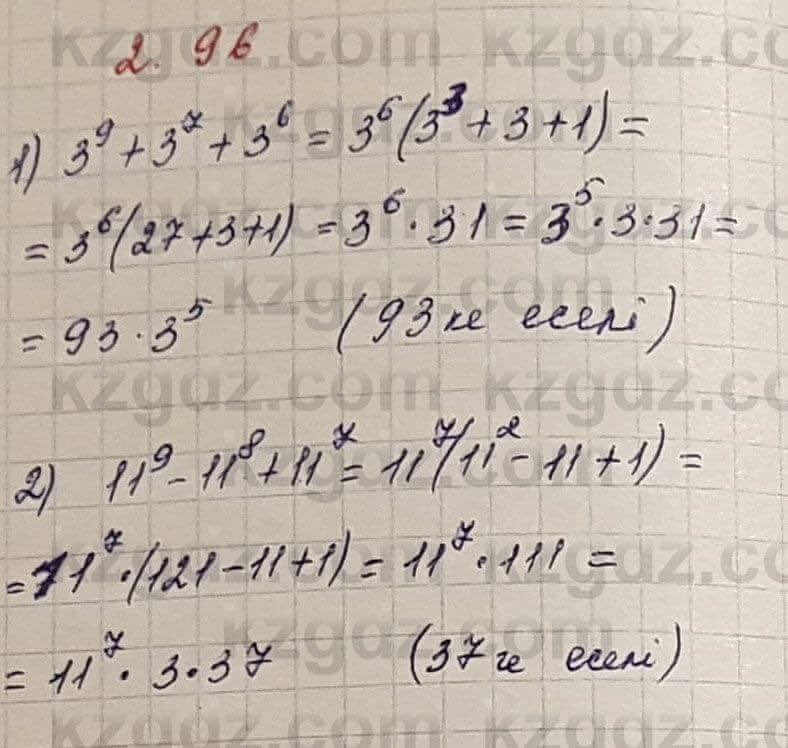 2.96
1) 3⁹ + 3⁷ + 3⁶ = 3⁶(3³ + 3 + 1) =
= 3⁶(27 + 3 + 1) = 3⁶ · 31 = 3⁵ · 3 · 31 =
= 93 · 3⁵ (93 ке еселі)
2) 11⁹ - 11⁸ + 11⁷ = 11⁷(11² - 11 + 1) =
= 11⁷ · (121 - 11 + 1) = 11⁷ · 111 =
= 11⁷ · 3 · 37 (37 ге еселі)